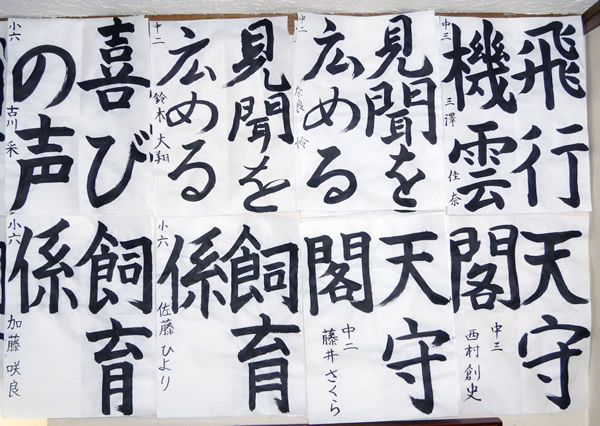 飛行
機雲
中三
三澤 佐奈
見聞を
広める
中二
奈良 怜
見聞を
広める
中二
鈴木 大翔
喜び
の声
小六
古川 采
天守
閣
中三
西村創史
天守
閣
中二
藤井さくら
飼育
係
小六
佐藤ひより
飼育
係
小六
加藤咲良